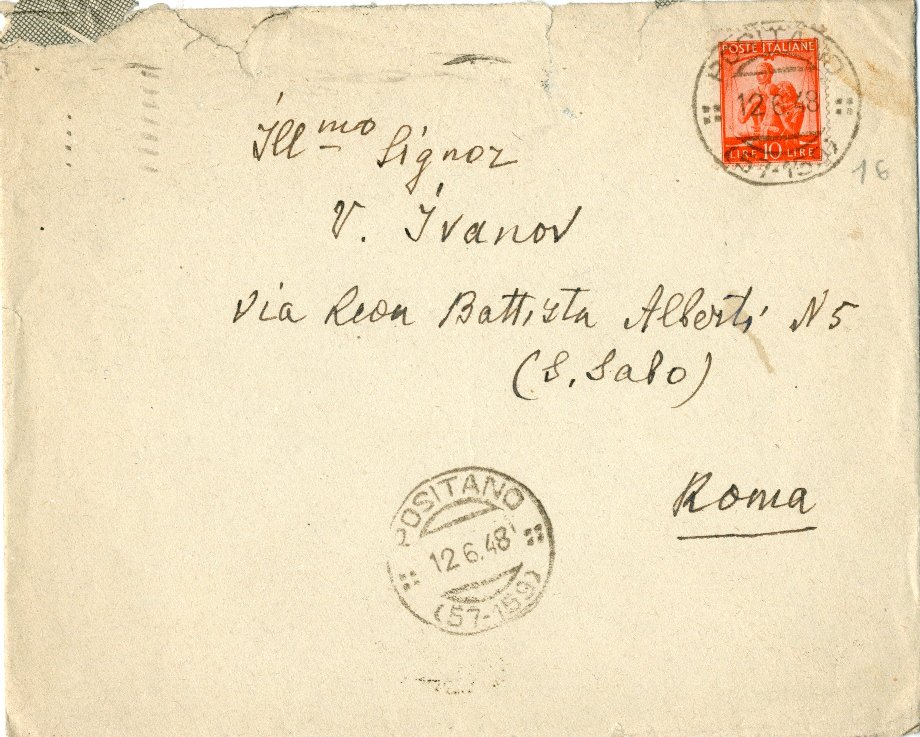 POSTE ITALIANE
POSITANO
12.6.48
LIRE 10 LIRE
(57-159)
16
Illmo Signor
V. Ivanov
Via Leon Battista Alberti N 5
(S. Sabo)
Roma
POSITANO
12.6.48
(57-159)